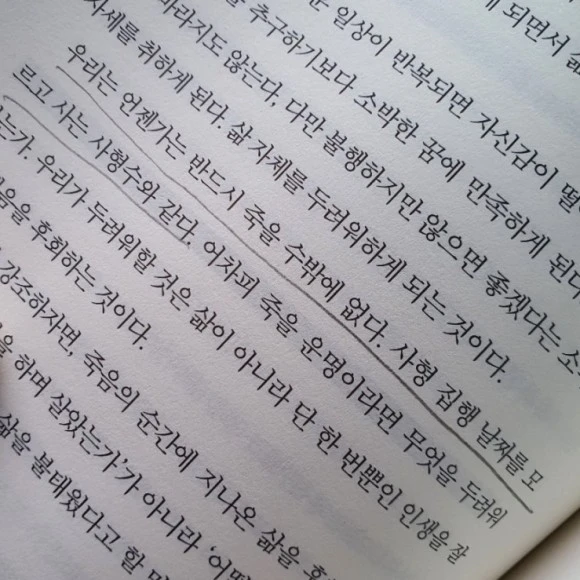 되면서
일상이 반복되면 자신감이
추구하기보다 소박한 꿈에 만족하게 된다
바라지도 않는다, 다만 불행하지만 않으면 좋겠다는
자세를 취하게 된다. 삶 자체를 두려워하게 되는 것이다.
우리는 언젠가는 반드시 죽을 수밖에 없다. 사형 집행 날짜를 모
르고 사는 사형수와 같다. 어차피 죽을 운명이라면 무엇을 두려워
는가. 우리가 두려워할 것은 삶이 아니라 단 한 번뿐인 인생을 잘
음을 후회하는 것이다.
강조하자면, 죽음의 순간에 지나온 삶을
을 하며 살았는가'가 아니라
삶을 불태웠다고 할